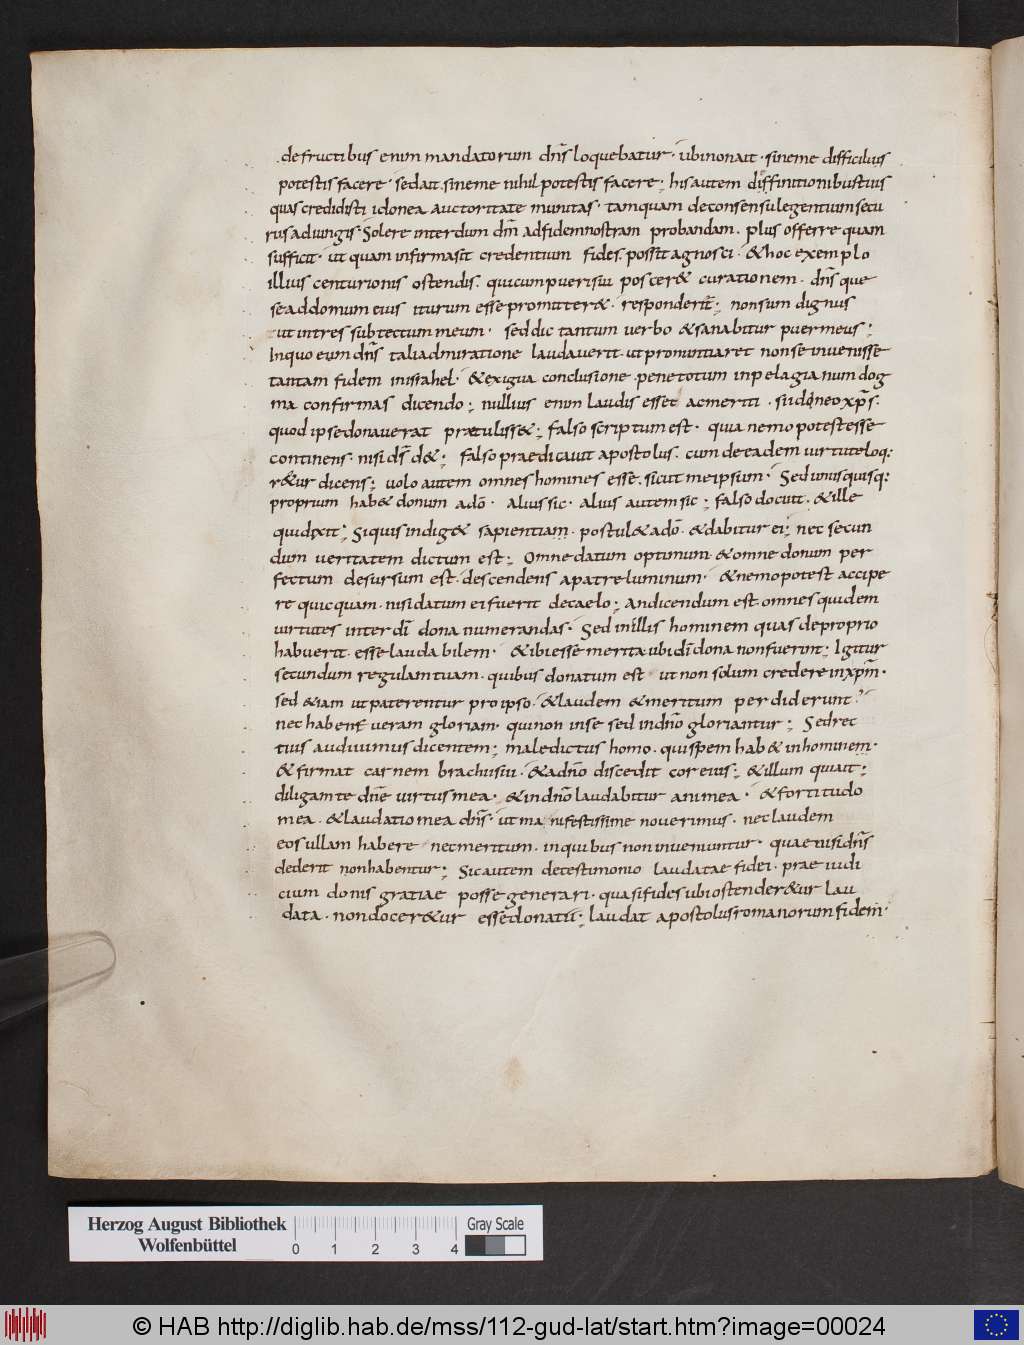 defructibus enim mandatorum dn̄s loquebatur · ubi non ait · sineme difficilius
potestis facere · sed ait . sineme nihil potestis facere ; his autem diffinitionibus tuis
quas credidisti idonea auctoritate munitas · tamquam deconsensu legentium secu
rus adiungis · Solere interdum dn̄m ad fidem nostram probandam . plus offerre quam
sufficit · ut quam infirma sit credentium fides . possit agnosci · & hoc exemplo
illius centurionis ostendis . qui cum puerisui poscer& curationem . dn̄sque
se ad domum eius iturum esse promitter& . responderit ; non sum dignus
ut intres sub tectum meum · sed dic tantum uerbo & sanabitur puer meus ;
Inquo eum dn̄s tali admiratione laudauerit . ut pronuntiaret non se inuenisse
tantam fidem in israhel · & exigua conclusione pene totum in pelagianum dog
ma confirmas dicendo ; nullius enim laudis esset ac meriti . si id in eo xp̄s .
quod ipse donauerat praetuliss& ; falso scriptum est . quia nemo potest esse
continens . nisi d̄s d& ; falso praedicauit apostolus . cum de eadem uirtute loq:
r&ur dicens ; uolo autem omnes homines esse . sicut me ipsum · Sed unusquisq:
proprium hab& donum a dō · alius sic · alius autem sic ; falso docuit . & ille
qui dixit ; Siquis indig& sapientiam . postul& a dō . & dabitur ei ; nec secun
dum ueritatem dictum est ; Omne datum optimum & omne donum per
fectum desursum est . descendens apatre luminum · & nemo potest accipe
re quicquam . nisi datum ei fuerit decaelo ; an dicendum est . omnes quidem
uirtutes inter dī dona numerandas · Sed in illis hominem quas de proprio
habuerit . esse laudabilem · & ibi esse merita ubi dī dona non fuerint ; Igitur
secundum regulam tuam . quibus donatum est ut non solum credere in xp̄m .
sed &iam ut paterentur pro ipso . & laudem & meritum perdiderunt
nec habent ueram gloriam . qui non inse sed indn̄o gloriantur ; Sed rec
tius audiuimus dicentem ; maledictus homo . qui spem hab& inhominem ·
& firmat carnem brachii sui . & a dn̄o discedit cor eius ; & illum qui ait ;
diligam te dn̄e uirtus mea . & indn̄o laudabitur anima · & fortitudo
mea . & laudatio mea dn̄s · ut manifestissime nouerimus . nec laudem
eos ullam habere nec meritum . inquibus non inueniuntur . quae nisi dn̄s
dederit non habentur ; Sic autem detestimonio laudatae fidei . praeiudi
cium donis gratiae posse generari . quasi fides ubi ostender&ur lau
data . non docer&ur esse donatū ; laudat apostolus romanorum fidem ·
Herzog August Bibliothek
Wolfenbüttel
0 1 2 3 4
Gray Scale
© HAB http://diglib.hab.de/mss/112-gud-lat/start.htm?image=00024